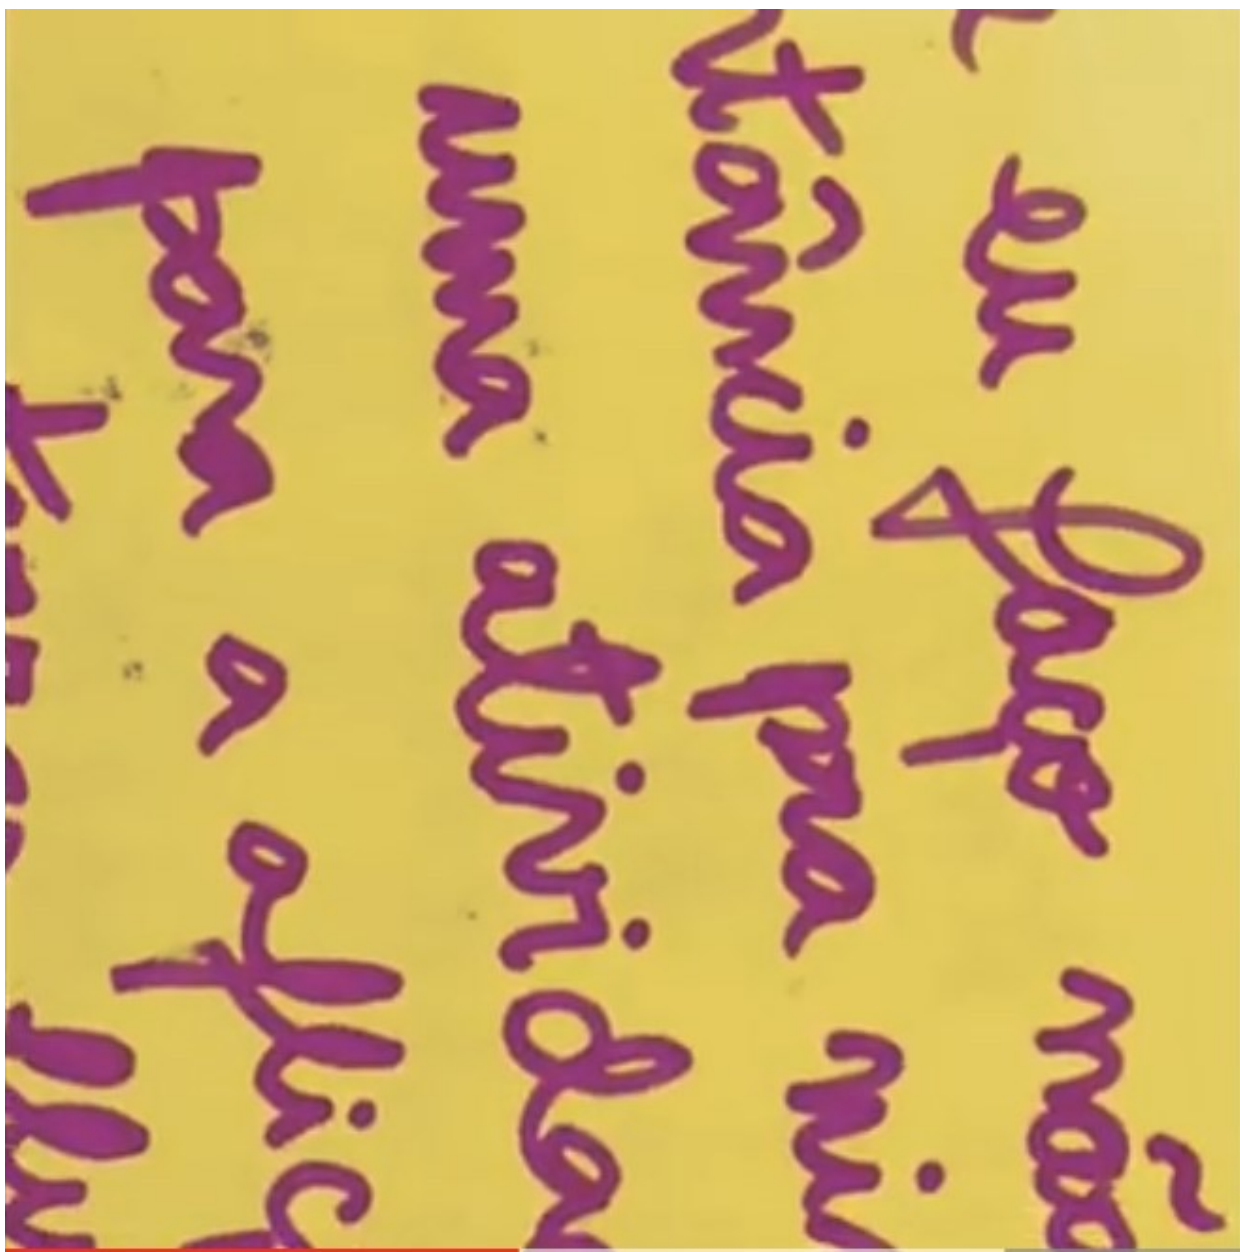 eu faço não
tância pra mi
uma ativida
para a aplic